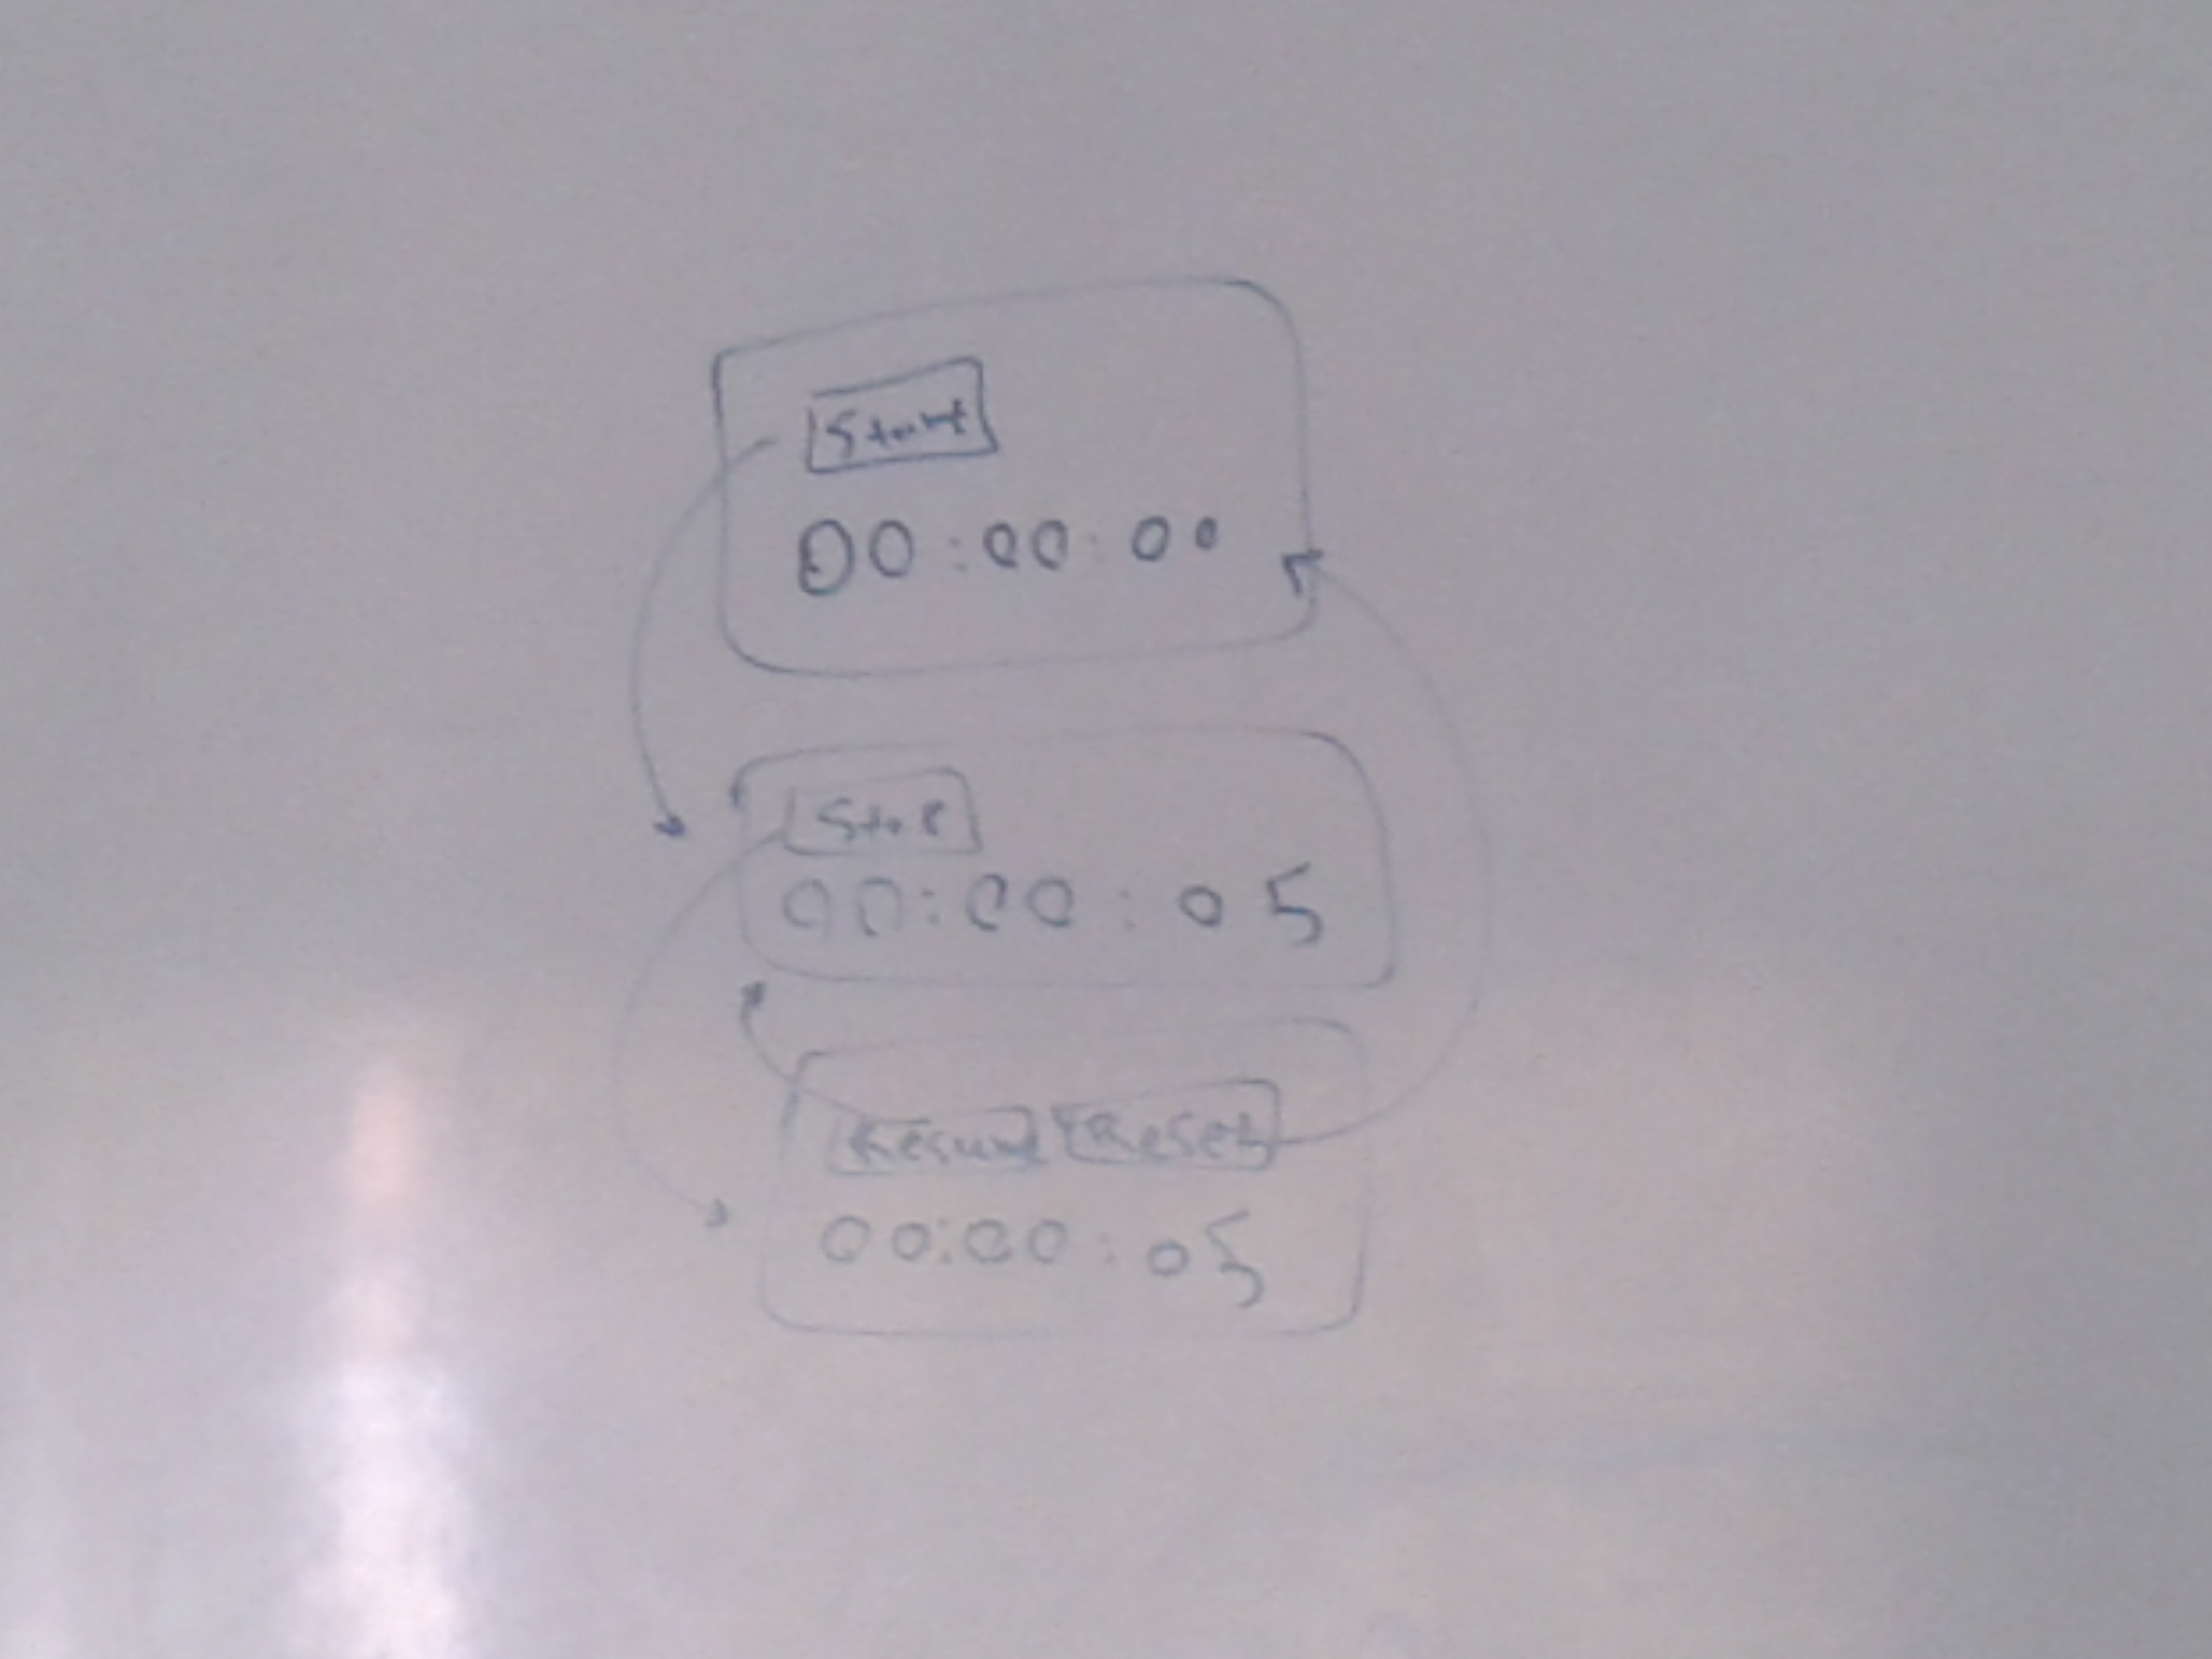 Start
00:00:00
Stop
00:00:05
Resume Reset
00:00:05